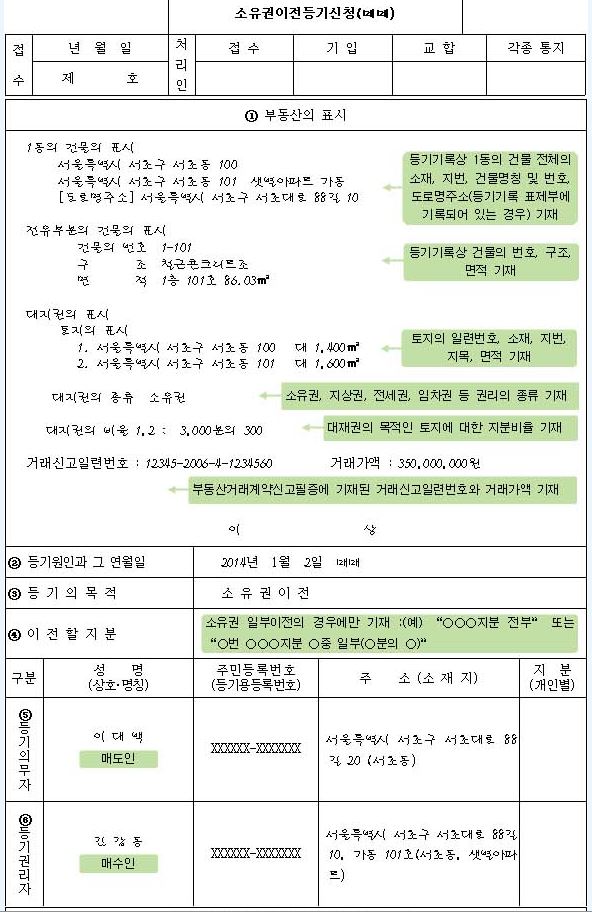 소유권이전등기신청(매매)
접수
년 월 일
처리인
접 수
기 입
교 합
각종 통지
제 호
① 부동산의 표시
1동의 건물의 표시
서울특별시 서초구 서초동 100
서울특별시 서초구 서초동 101 샛별아파트 가동
[도로명주소] 서울특별시 서초구 서초대로 88길 10
등기기록상 1동의 건물 전체의
소재, 지번, 건물명칭 및 번호,
도로명주소(등기기록 표제부에
기록되어 있는 경우) 기재
전유부분의 건물의 표시
건물의 번호 1-101
구 조 철근콘크리트조
면 적 1층 101호 86.03㎡
등기기록상 건물의 번호, 구조,
면적 기재
대지권의 표시
토지의 표시
1. 서울특별시 서초구 서초동 100 대 1,400㎡
2. 서울특별시 서초구 서초동 101 대 1,600㎡
토지의 일련번호, 소재, 지번,
지목, 면적 기재
대지권의 종류 소유권
소유권, 지상권, 전세권, 임차권 등 권리의 종류 기재
대지권의 비율 1,2 : 3,000분의 300
대재권의 목적인 토지에 대한 지분비율 기재
거래신고일련번호 : 12345-2006-4-1234560 거래가액 : 350,000,000원
부동산거래계약신고필증에 기재된 거래신고일련번호와 거래가액 기재
이 상
② 등기원인과 그 연월일
2014년 1월 2일 매매
③ 등 기 의 목 적
소 유 권 이 전
④ 이 전 할 지 분
소유권 일부이전의 경우에만 기재 :(예) “○○○지분 전부“ 또는
“○번 ○○○지분 ○중 일부(○분의 ○)“
구분
성 명
(상호·명칭)
주민등록번호
(등기용등록번호)
주 소 (소 재 지)
지 분
(개인별)
⑤등기의무자
이 대 백
매도인
XXXXXX-XXXXXXX
서울특별시 서초구 서초대로 88
길 20 (서초동)
⑥등기권리자
김 갑 동
매수인
XXXXXX-XXXXXXX
서울특별시 서초구 서초대로 88길
10, 가동 101호(서초동, 샛별아파
트)